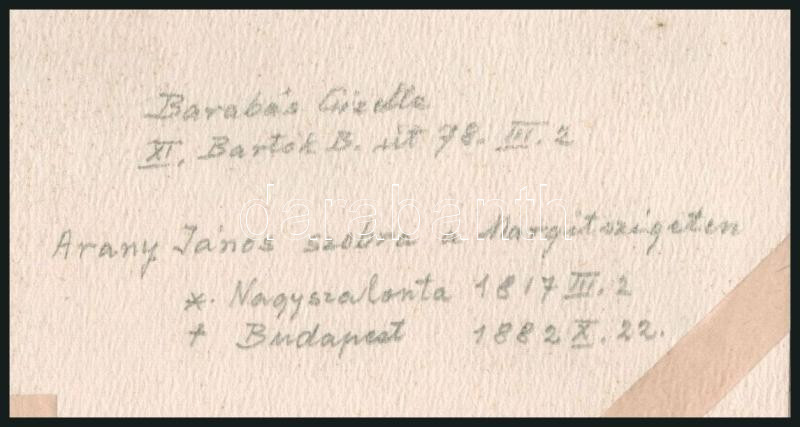 Barabás Gizella
XI. Bartók B. út 78. III. 2
darabanth
Arany János szobra a Margitszigeten
*. Nagyszalonta 1817 III. 2
† Budapest 1882 X. 22.